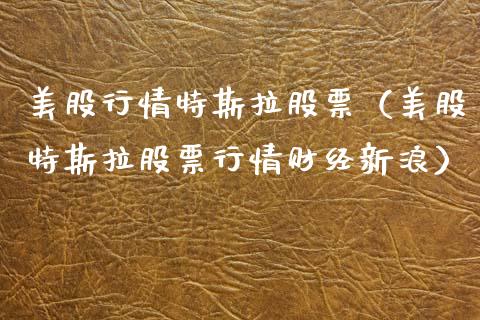 美股行情特斯拉股票（美股
特斯拉股票行情财经新浪）